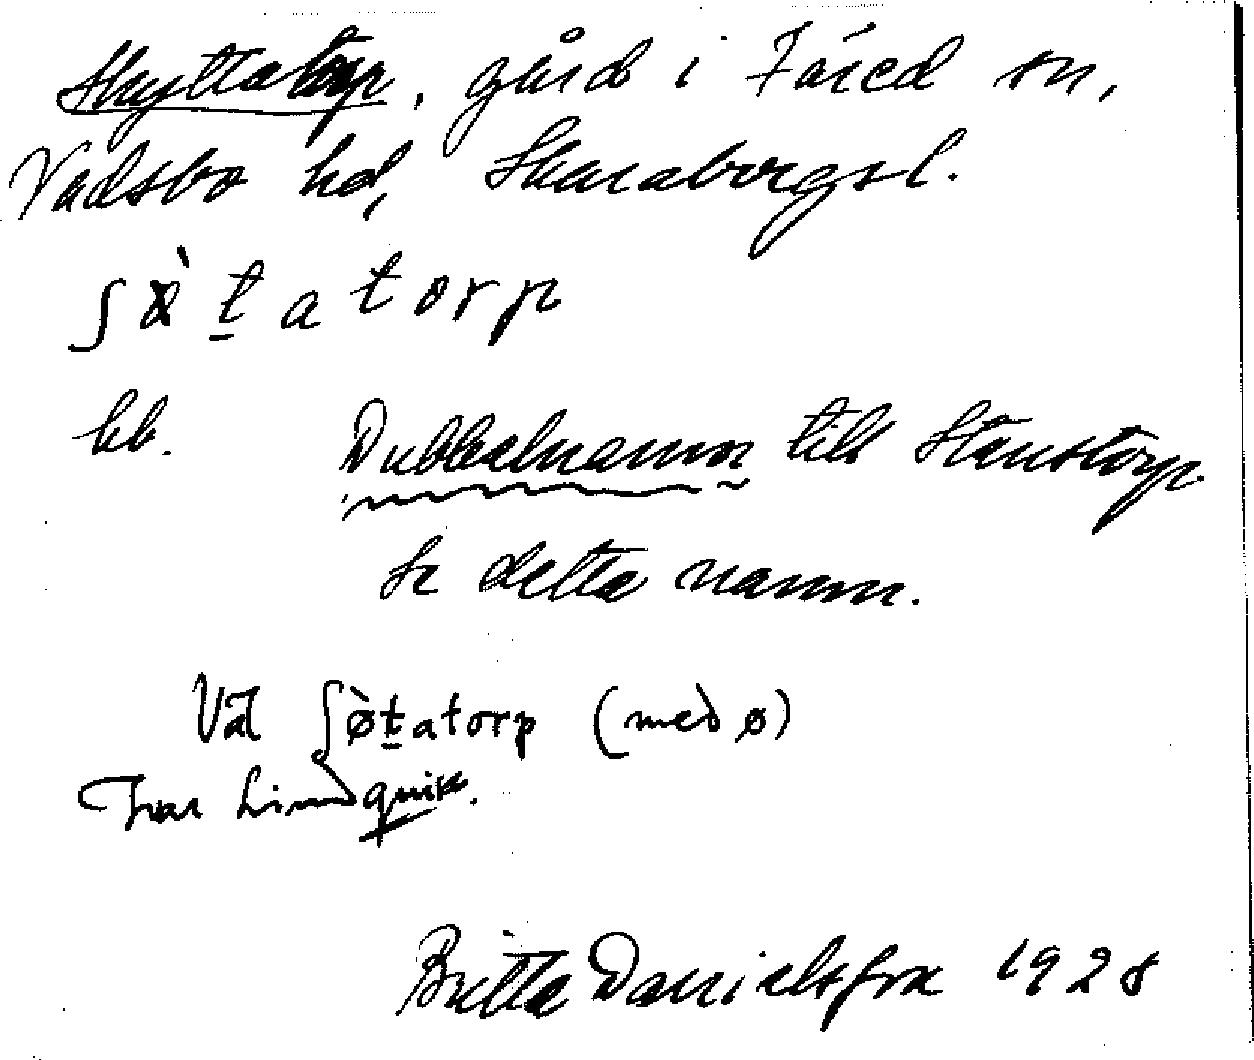 Skyttatorp, gård i Färed sn,
Vadsbo hd, Skaraborgs l.
ʃø̀t̲atorp
bb. Dubbelnamn till Stenstorp
Se detta namn.
Väl ʃø̀t̲atorp (med ø)
Ivar Lindquist.
Britta Danielsson 1928